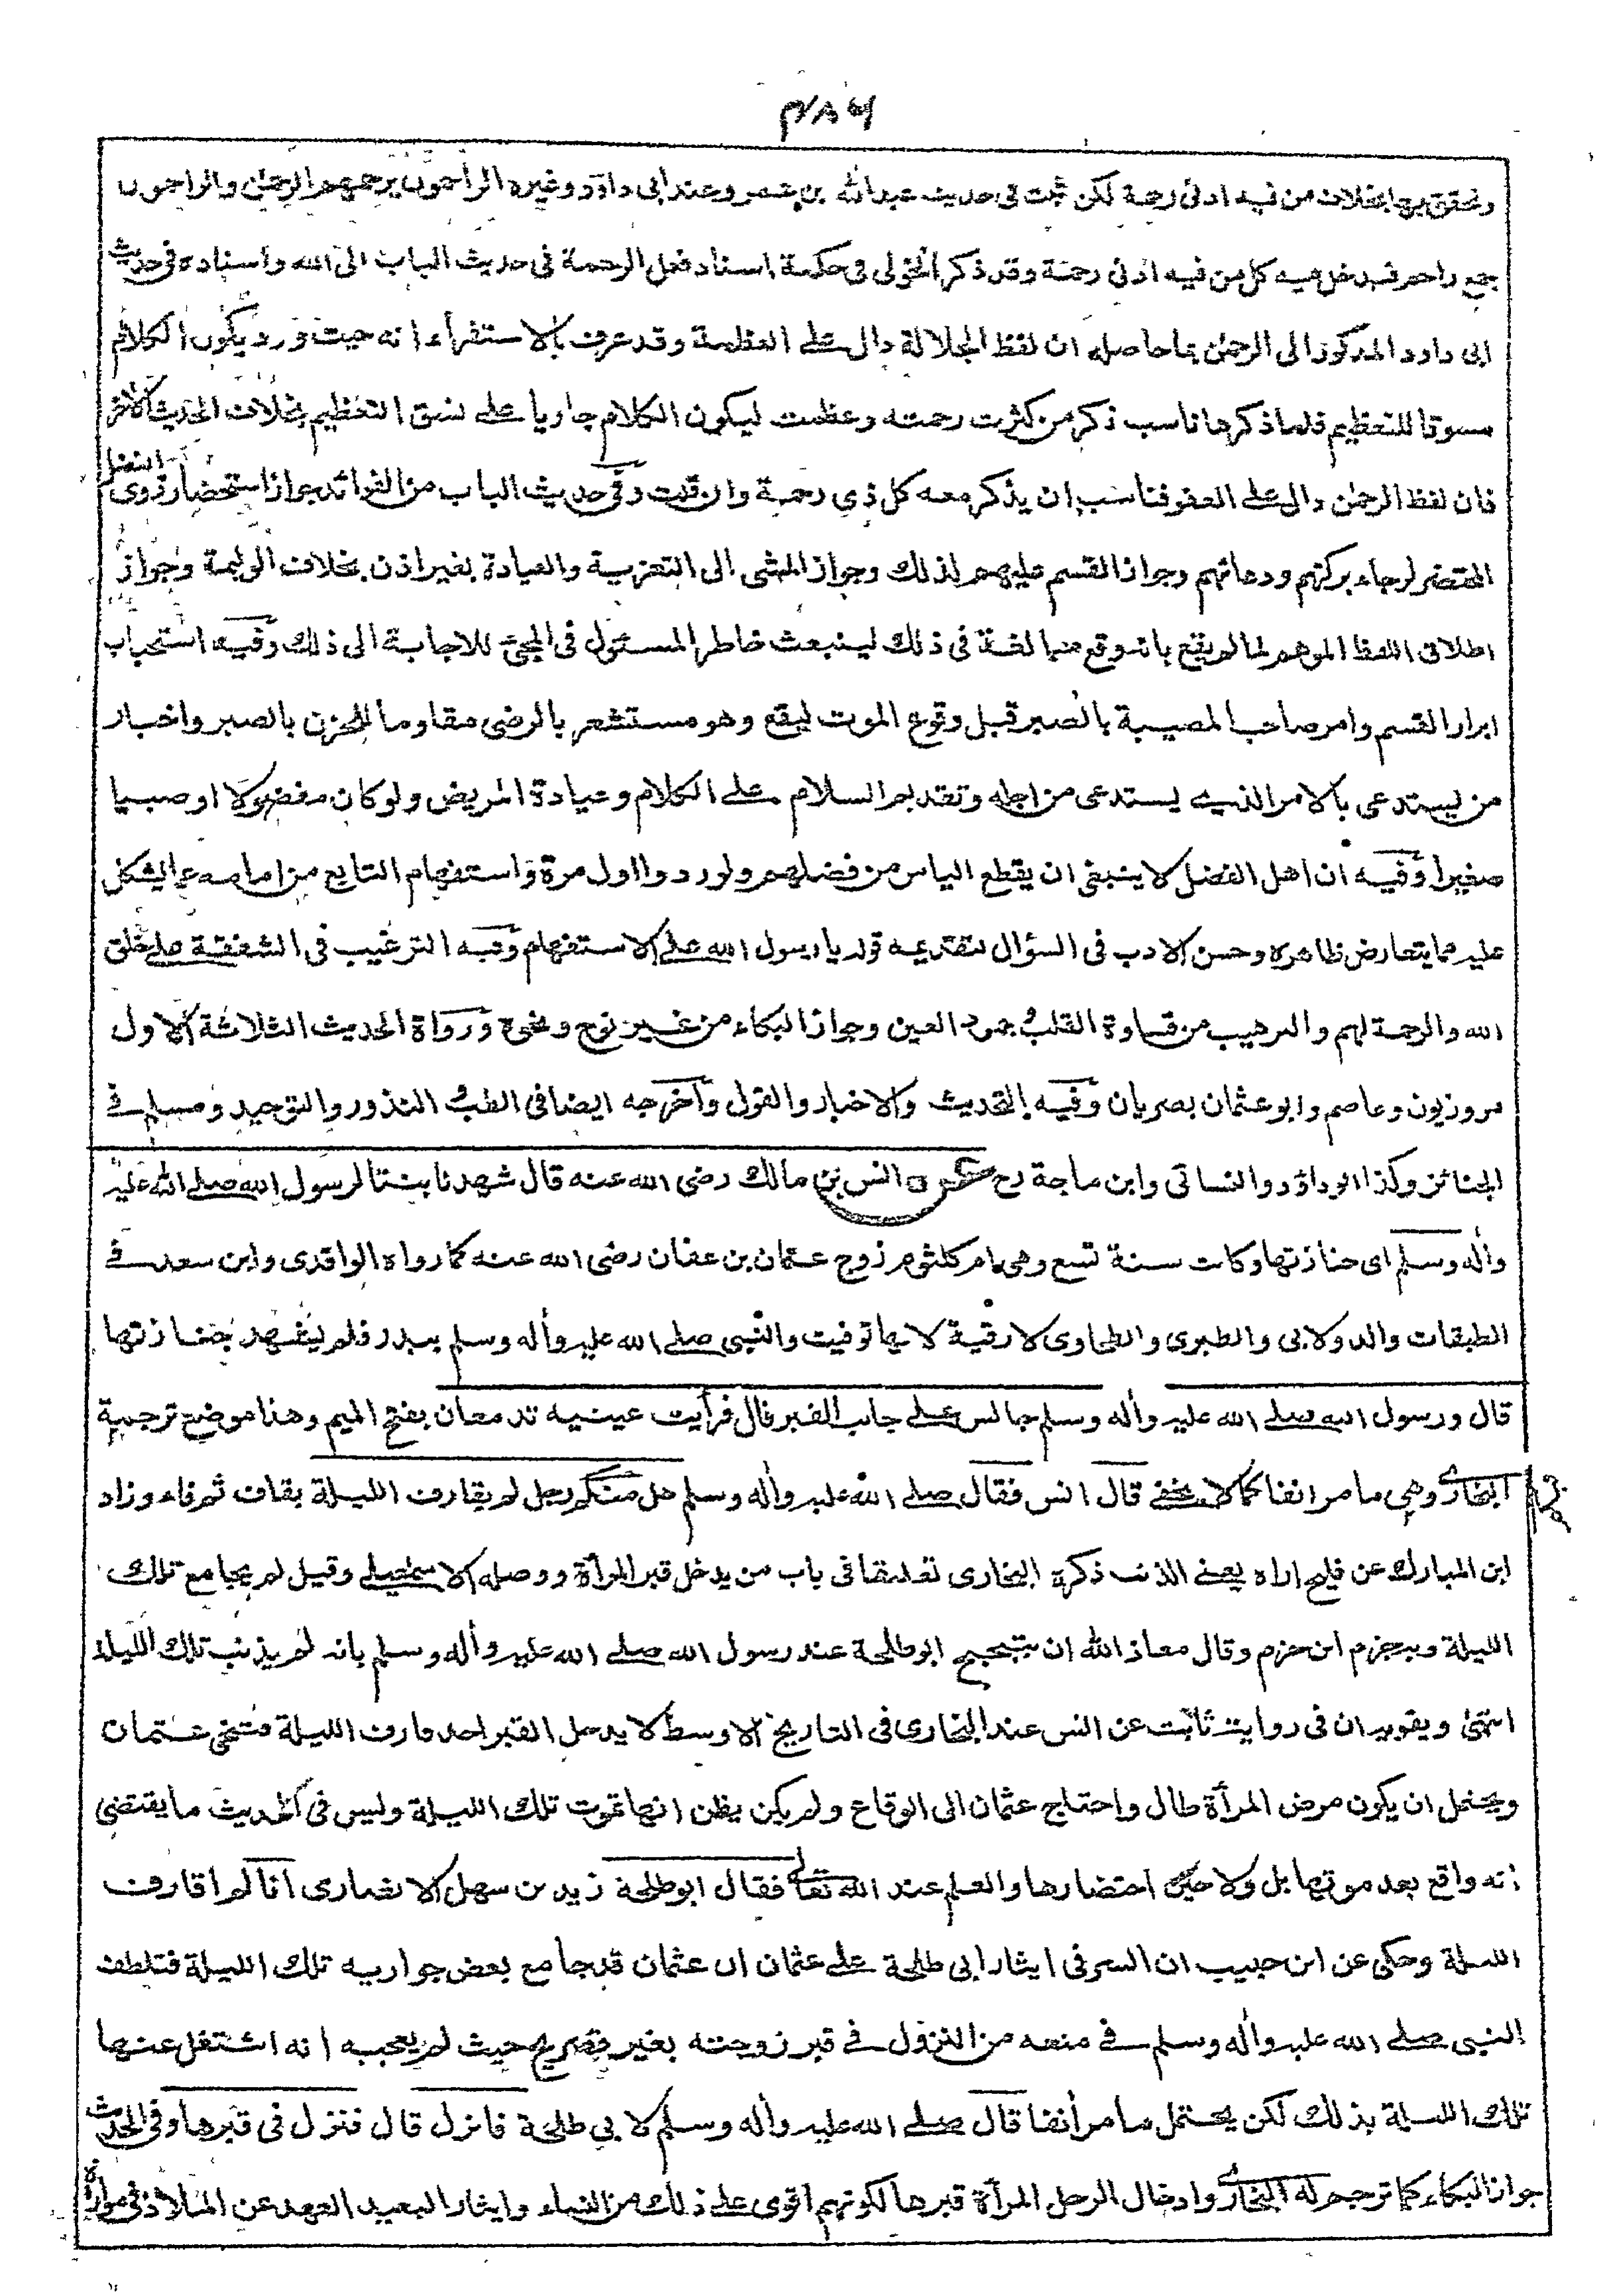 وتحقق بها بخلاف من فيه ادنى رحمة لكن ثبت فى حديث عبدالله بن عمرو عند ابى داؤد وغيره الراحمون يرحمهم الرحمٰن والراحمون
جمع راحم فيدخل فيه كل من فيه ادنى رحمة وقد ذكر الخولى فى حكمة اسناد فعل الرحمة فى حديث الباب الى الله واسناده فى حديث
ابى داود المذكور الى الرحمٰن بما حاصله ان لفظ الجلالة دال على العظمة وقد عرف بالاستقرأء انه حيث ورد يكون الكلام
مسوقا للتعظيم فلما ذكرها ناسب ذكر من كثرت رحمته وعظمت ليكون الكلام جاريا على نسق التعظيم بخلاف الحديث الاخر
فان لفظ الرحمٰن دال على العفو فناسب ان يذكر معه كل ذى رحمة وان قلت وفى حديث الباب من الفوائد جواز استحضار ذوى الفضل
المحتضر لرجاء بركتهم ودعائهم وجواز القسم عليهم لذلك وجواز المشى الى التعزية والعيادة بغير اذن بخلاف الوليمة وجواز
اطلاق اللفظ الموهم لما لم يقع بانه وقع مبالغة فى ذلك لينبعث خاطر المسئول فى المجئ للاجابة الى ذلك وفيه استحباب
ابرار القسم وامر صاحب المصيبة بالصبر قبل وقوع الموت ليقع وهو مستشعر بالرضى مقاوما للحزن بالصبر واخبار
من يستدعى بالامر الذى يستدعى من اجله وتقديم السلام على الكلام وعيادة المريض ولو كان مفضولا او صبيا
صغيرا وفيه ان اهل الفضل لا ينبغى ان يقطع الياس من فضلهم ولو ردوا اول مرة واستفهام التابع من امامه عما يشكل
عليه مما يتعارض ظاهره وحسن الادب فى السؤال لتقديمه قوله يا رسول الله على الاستفهام وفيه الترغيب فى الشفقة على خلق
الله والرحمة لهم والترهيب من قساوة القلب وجمود العين وجواز البكاء من غير نوح ونحوه ورواة الحديث الثلاثة الاول
مروزيون وعاصم وابو عثمان بصريان وفيه التحديث والاخبار والقول واخرجه ايضا فى الطب والنذور والتوحيد ومسلم فى
الجنائز وكذا ابوداؤد والنسائى وابن ماجة رح عن انس بن مالك رضى الله عنه قال شهدنا بنتا لرسول الله صلى الله عليه
وأله وسلم اى جنازتها وكانت سنة تسع وهى ام كلثوم زوج عثمان بن عفان رضى الله عنه كما رواه الواقدى وابن سعد فى
الطبقات والدولابى والطبرى والطحاوى لا رقية لانها توفيت والنبى صلى الله عليه وأله وسلم ببدر فلم يشهد جنازتها
قال ورسول الله صلى الله عليه وأله وسلم جالس على جانب القبر قال فرأيت عينيه تدمعان بفتح الميم وهذا موضع ترجمة
البخارى وهى ما مر انفا كما لا يخفى قال انس فقال صلى الله عليه وأله وسلم هل منكم رجل لم يقارف الليلة بقاف ثم فاء وزاد
ابن المبارك عن فليح اراه يعنى الذنب ذكره البخارى تعليقا فى باب من يدخل قبر المرأة ووصله الاسمعيلى وقيل لم يجامع تلك
الليلة وبه جزم ابن حزم وقال معاذ الله ان يتبجح ابو طلحة عند رسول الله صلى الله عليه وأله وسلم بانه لم يذنب تلك الليلة
انتهى ويقويه ان فى رواية ثابت عن انس عند البخارى فى التاريخ الاوسط لا يدخل القبر احد قارف الليلة فتنحى عثمان
ويحتمل ان يكون مرض المرأة طال واحتاج عثمان الى الوقاع ولم يكن يظن انها تموت تلك الليلة وليس فى الحديث ما يقتضى
انه واقع بعد موتها بل ولا حين احتضارها والعلم عند الله تعالى فقال ابو طلحة زيد بن سهل الانصارى انا لم اقارف
الليلة وحكى عن ابن حبيب ان السر فى ايثار ابى طلحة على عثمان ان عثمان قد جامع بعض جواريه تلك الليلة فتلطف
النبى صلى الله عليه وأله وسلم فى منعه من النزول فى قبر زوجته بغير تصريح حيث لم يعجبه انه اشتغل عنها
تلك الليلة بذلك لكن يحتمل ما مر أنفا قال صلى الله عليه وأله وسلم لابى طلحة فانزل قال فنزل فى قبرها وفى الحديث
جواز البكاء كما ترجم له البخارى وادخال الرجل المرأة قبرها لكونهم اقوى على ذلك من النساء وايثار البعيد العهد عن الملاذ فى مواراة